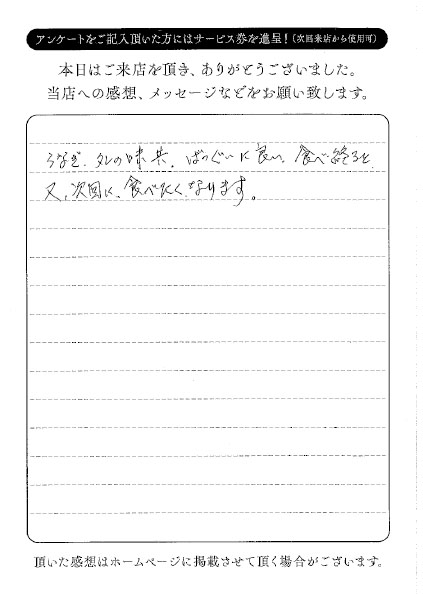 アンケートをご記入頂いた方にはサービス券を進呈！(次回来店から使用可)
本日はご来店を頂き、ありがとうございました。
当店への感想、メッセージなどをお願い致します。
うなぎ、タレの味共、ばつぐいに良い、食べ終ると
又、次回に、食べたくなります。
頂いた感想はホームページに掲載させて頂く場合がございます。